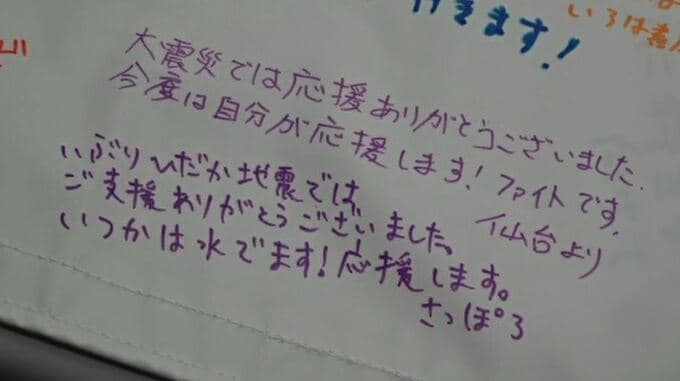 きます!
いろは書
大震災では応援ありがとうございました.
今度は自分が応援します! ファイトです.
仙台より
いぶりひだか地震では、
ご支援ありがとうございました。
いつかは水でます! 応援します。
さっぽろ